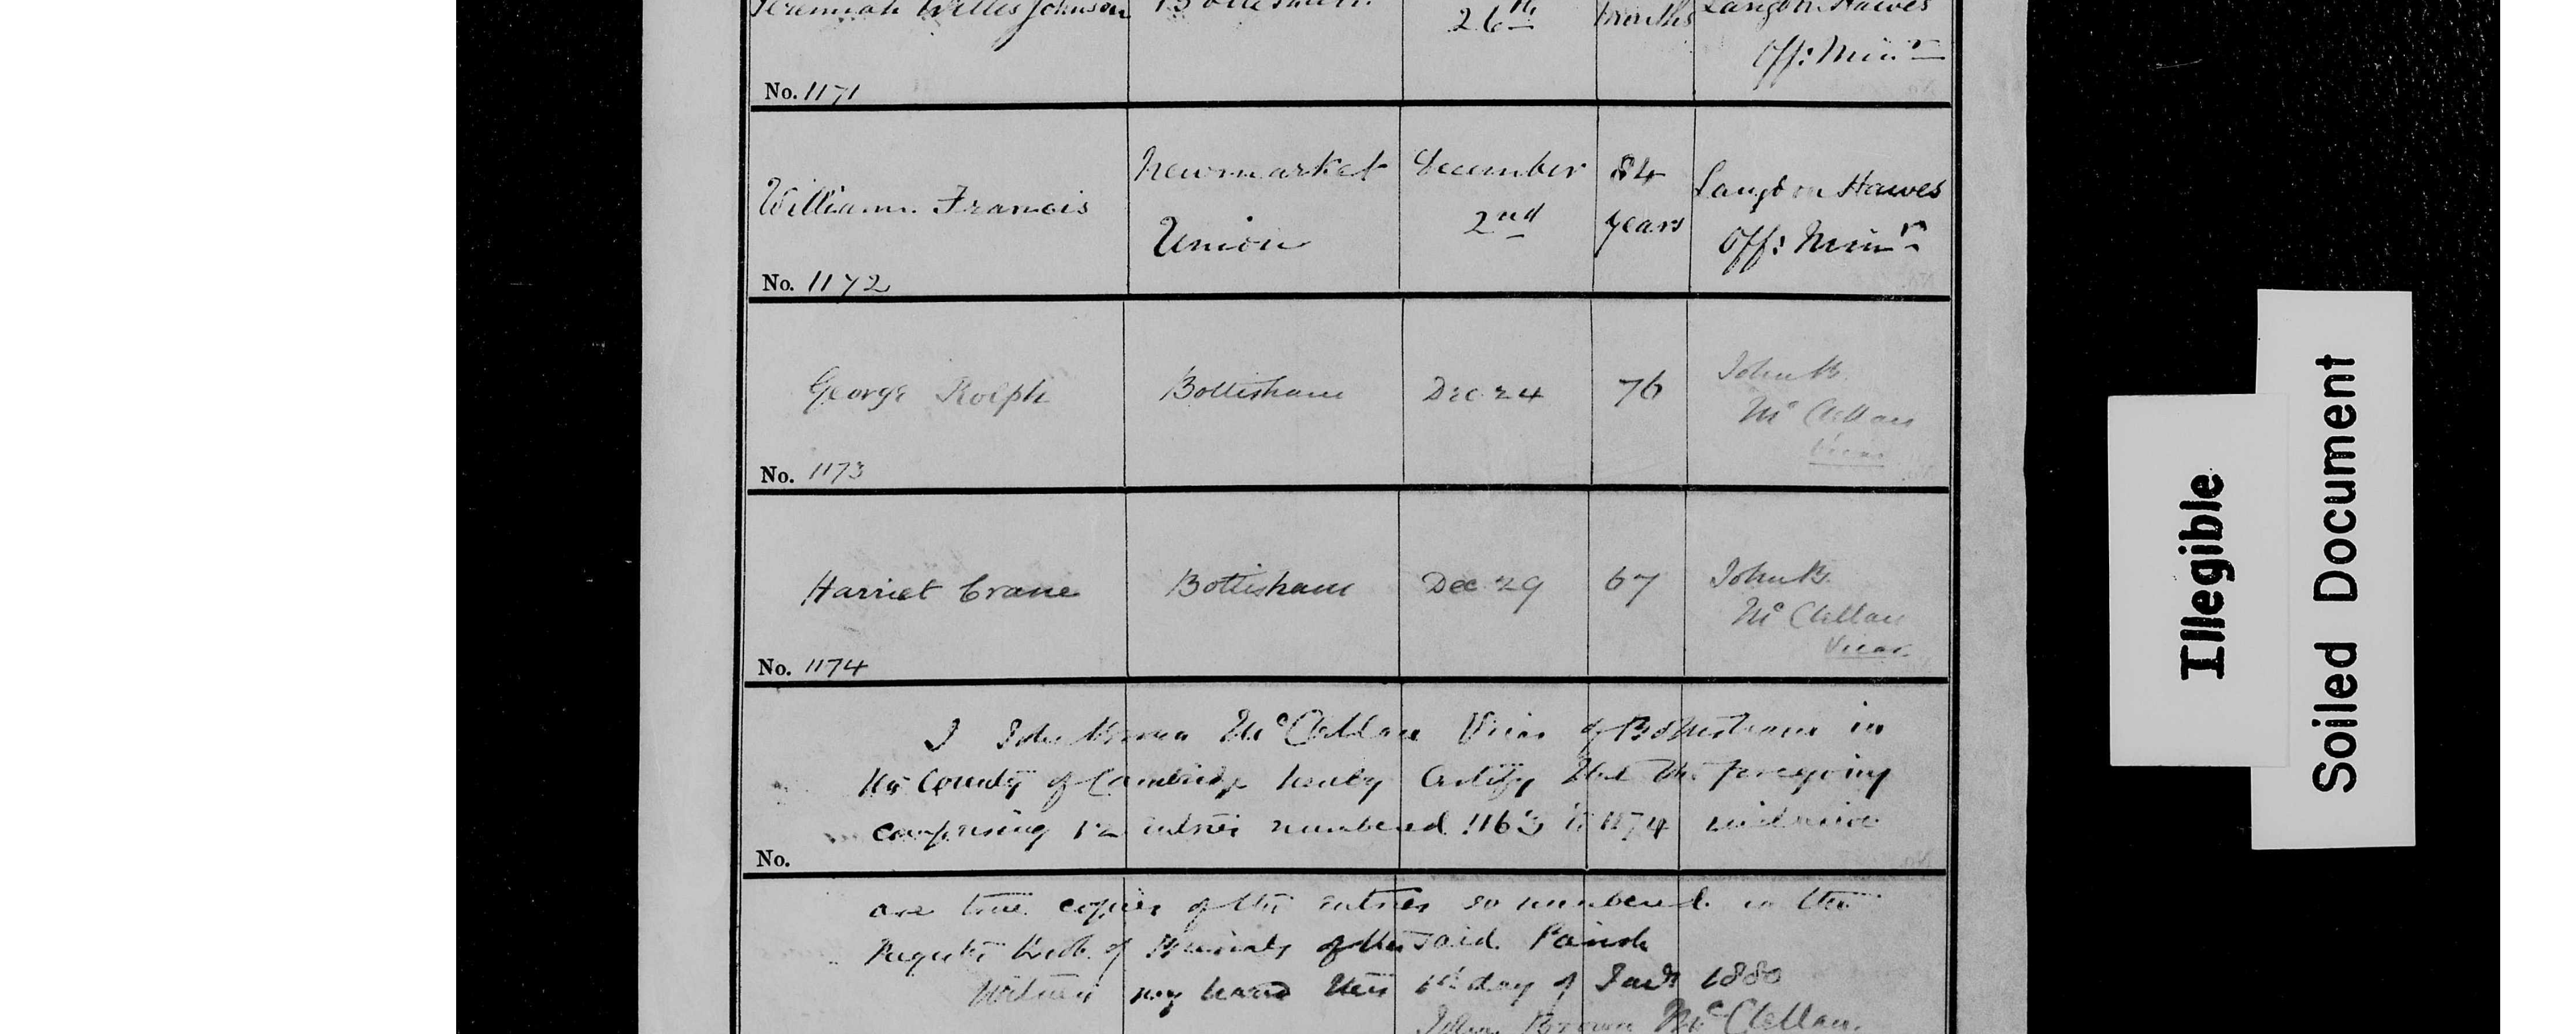 Jeremiah Willis Johnson
Bottisham
26th
months
Langton Hawes
Off: Minr
No. 1171
William Francis
Newmarket
Union
December
2nd
84
years
Langton Hawes
Off: Minr
No. 1172
George Rolph
Bottisham
Dec 24
76
John B.
Mc Clellan
Vicar
No. 1173
Harriet Crane
Bottisham
Dec 29
67
John B.
Mc Clellan
Vicar
No. 1174
I John Brown McClellan Vicar of Bottisham in
the County of Cambridge hereby Certify that the foregoing
comprising 12 entries numbered 1163 to 1174 inclusive
No.
are true copies of the entries so numbered in the
Register Book of Burials of the said Parish
Witness my hand this day of Jany 1880
John Brown McClellan.
Illegible
Soiled Document